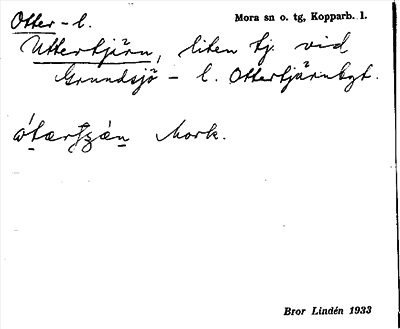 Otter- l. Mora sn o. tg, Kopparb. l.
Uttertjärn, liten tj. vid
Grundsjö - l. Ottertjärnbgt.
Mork.
Bror Lindén 1933